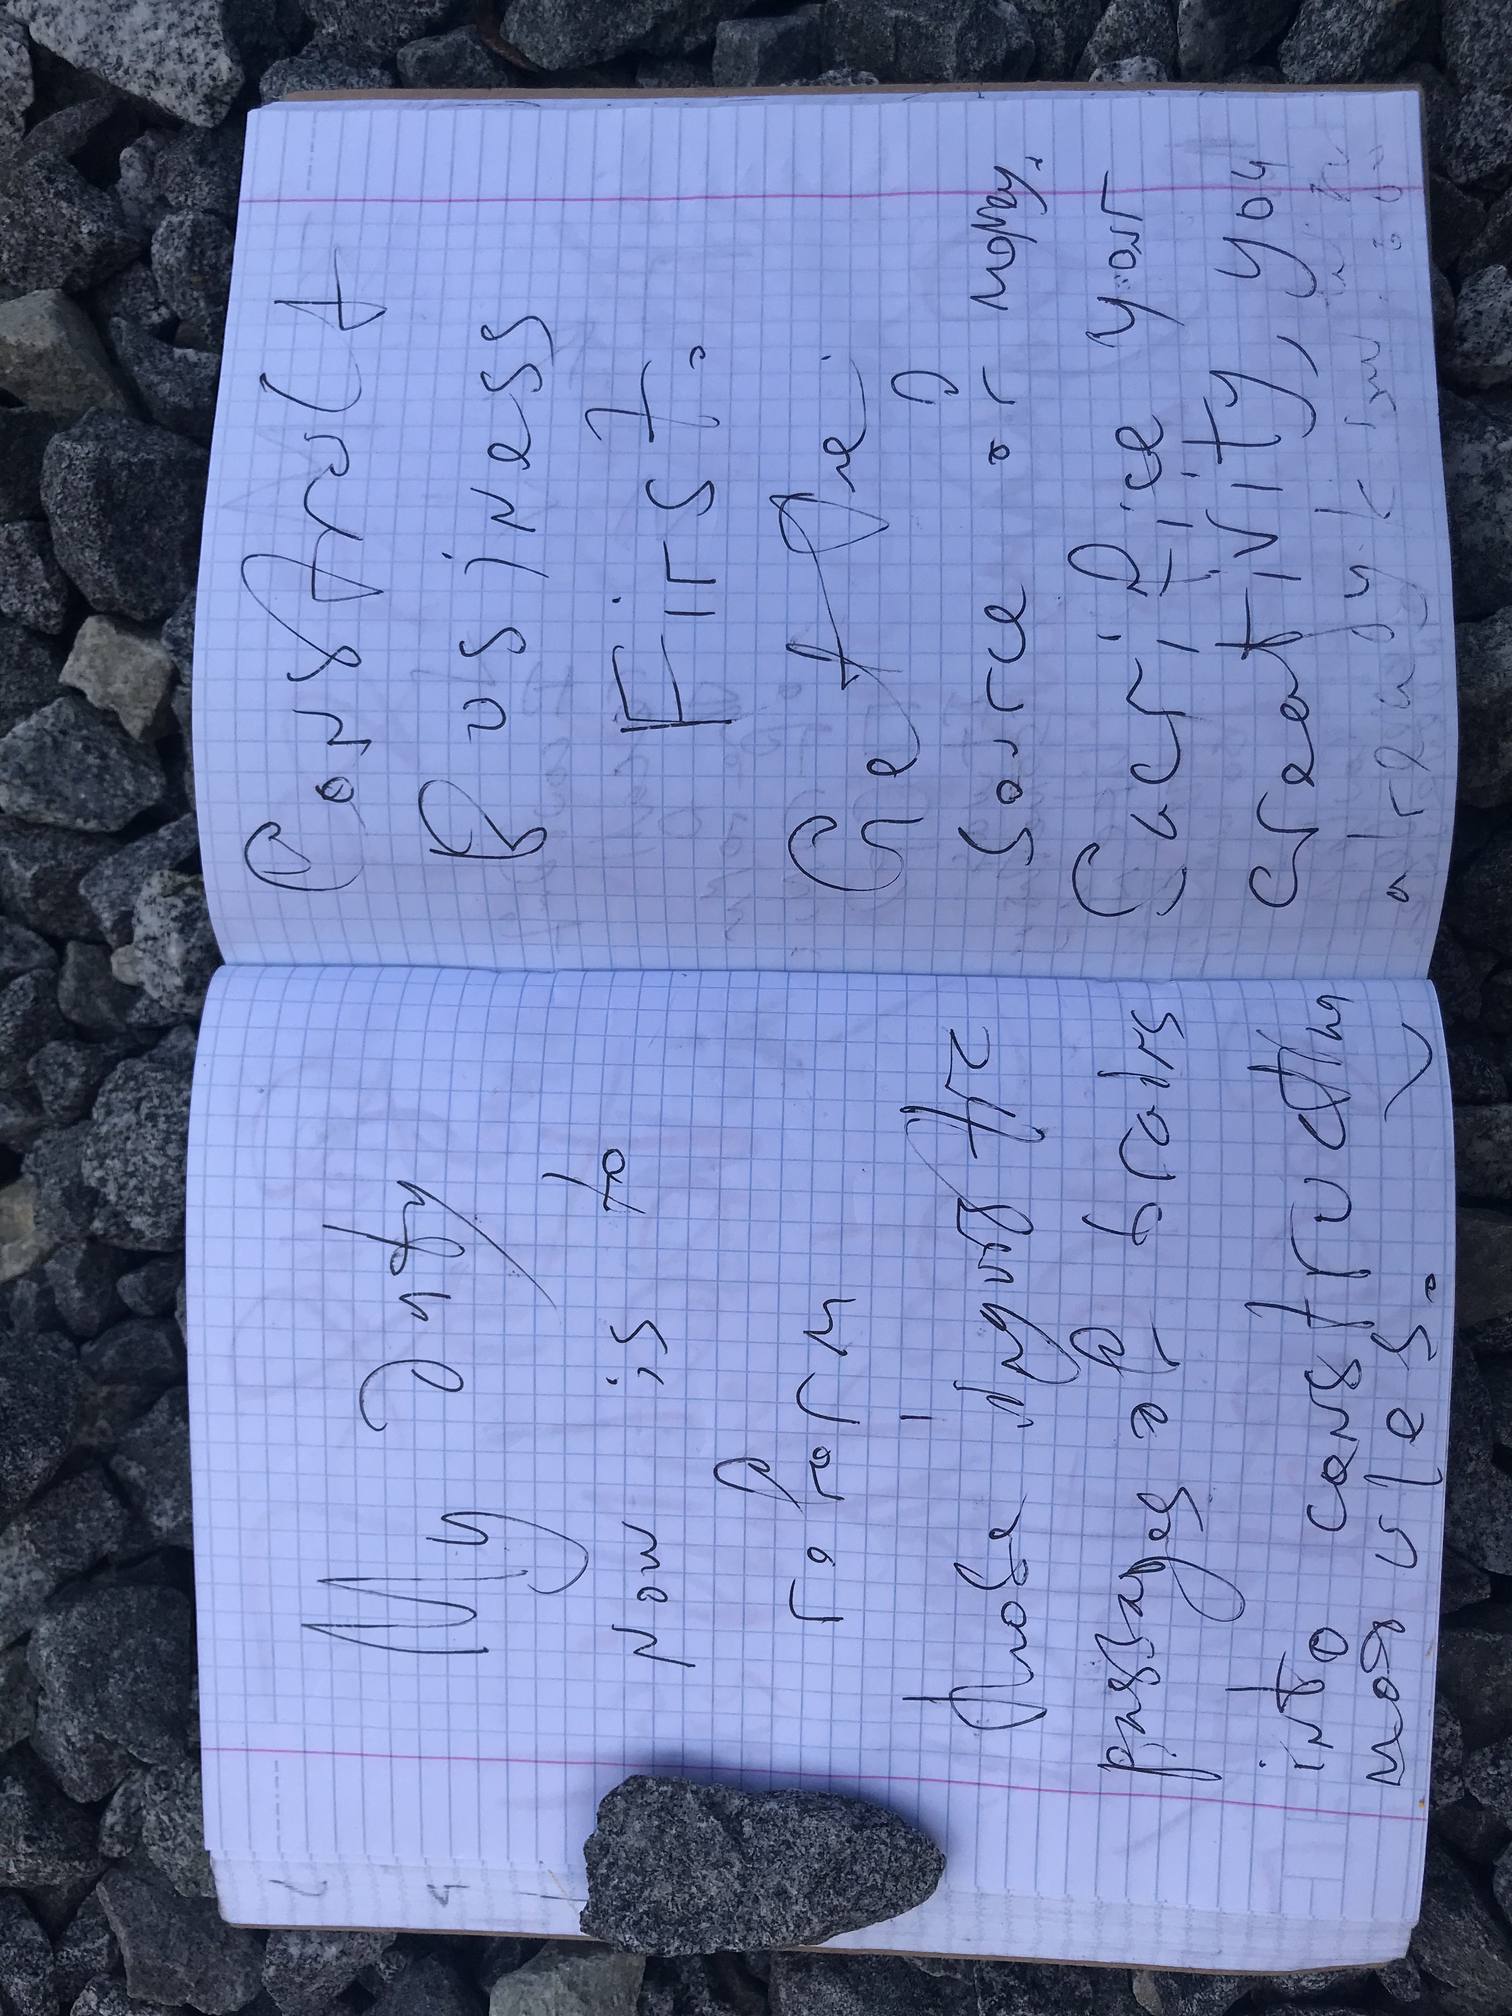 My duty
now is to
reform
those inguistic
passages of brains
into constructing
modules.
Construct
Business
First.
Get the
sorce of money.
Sacrifice your
creativity, you
already k